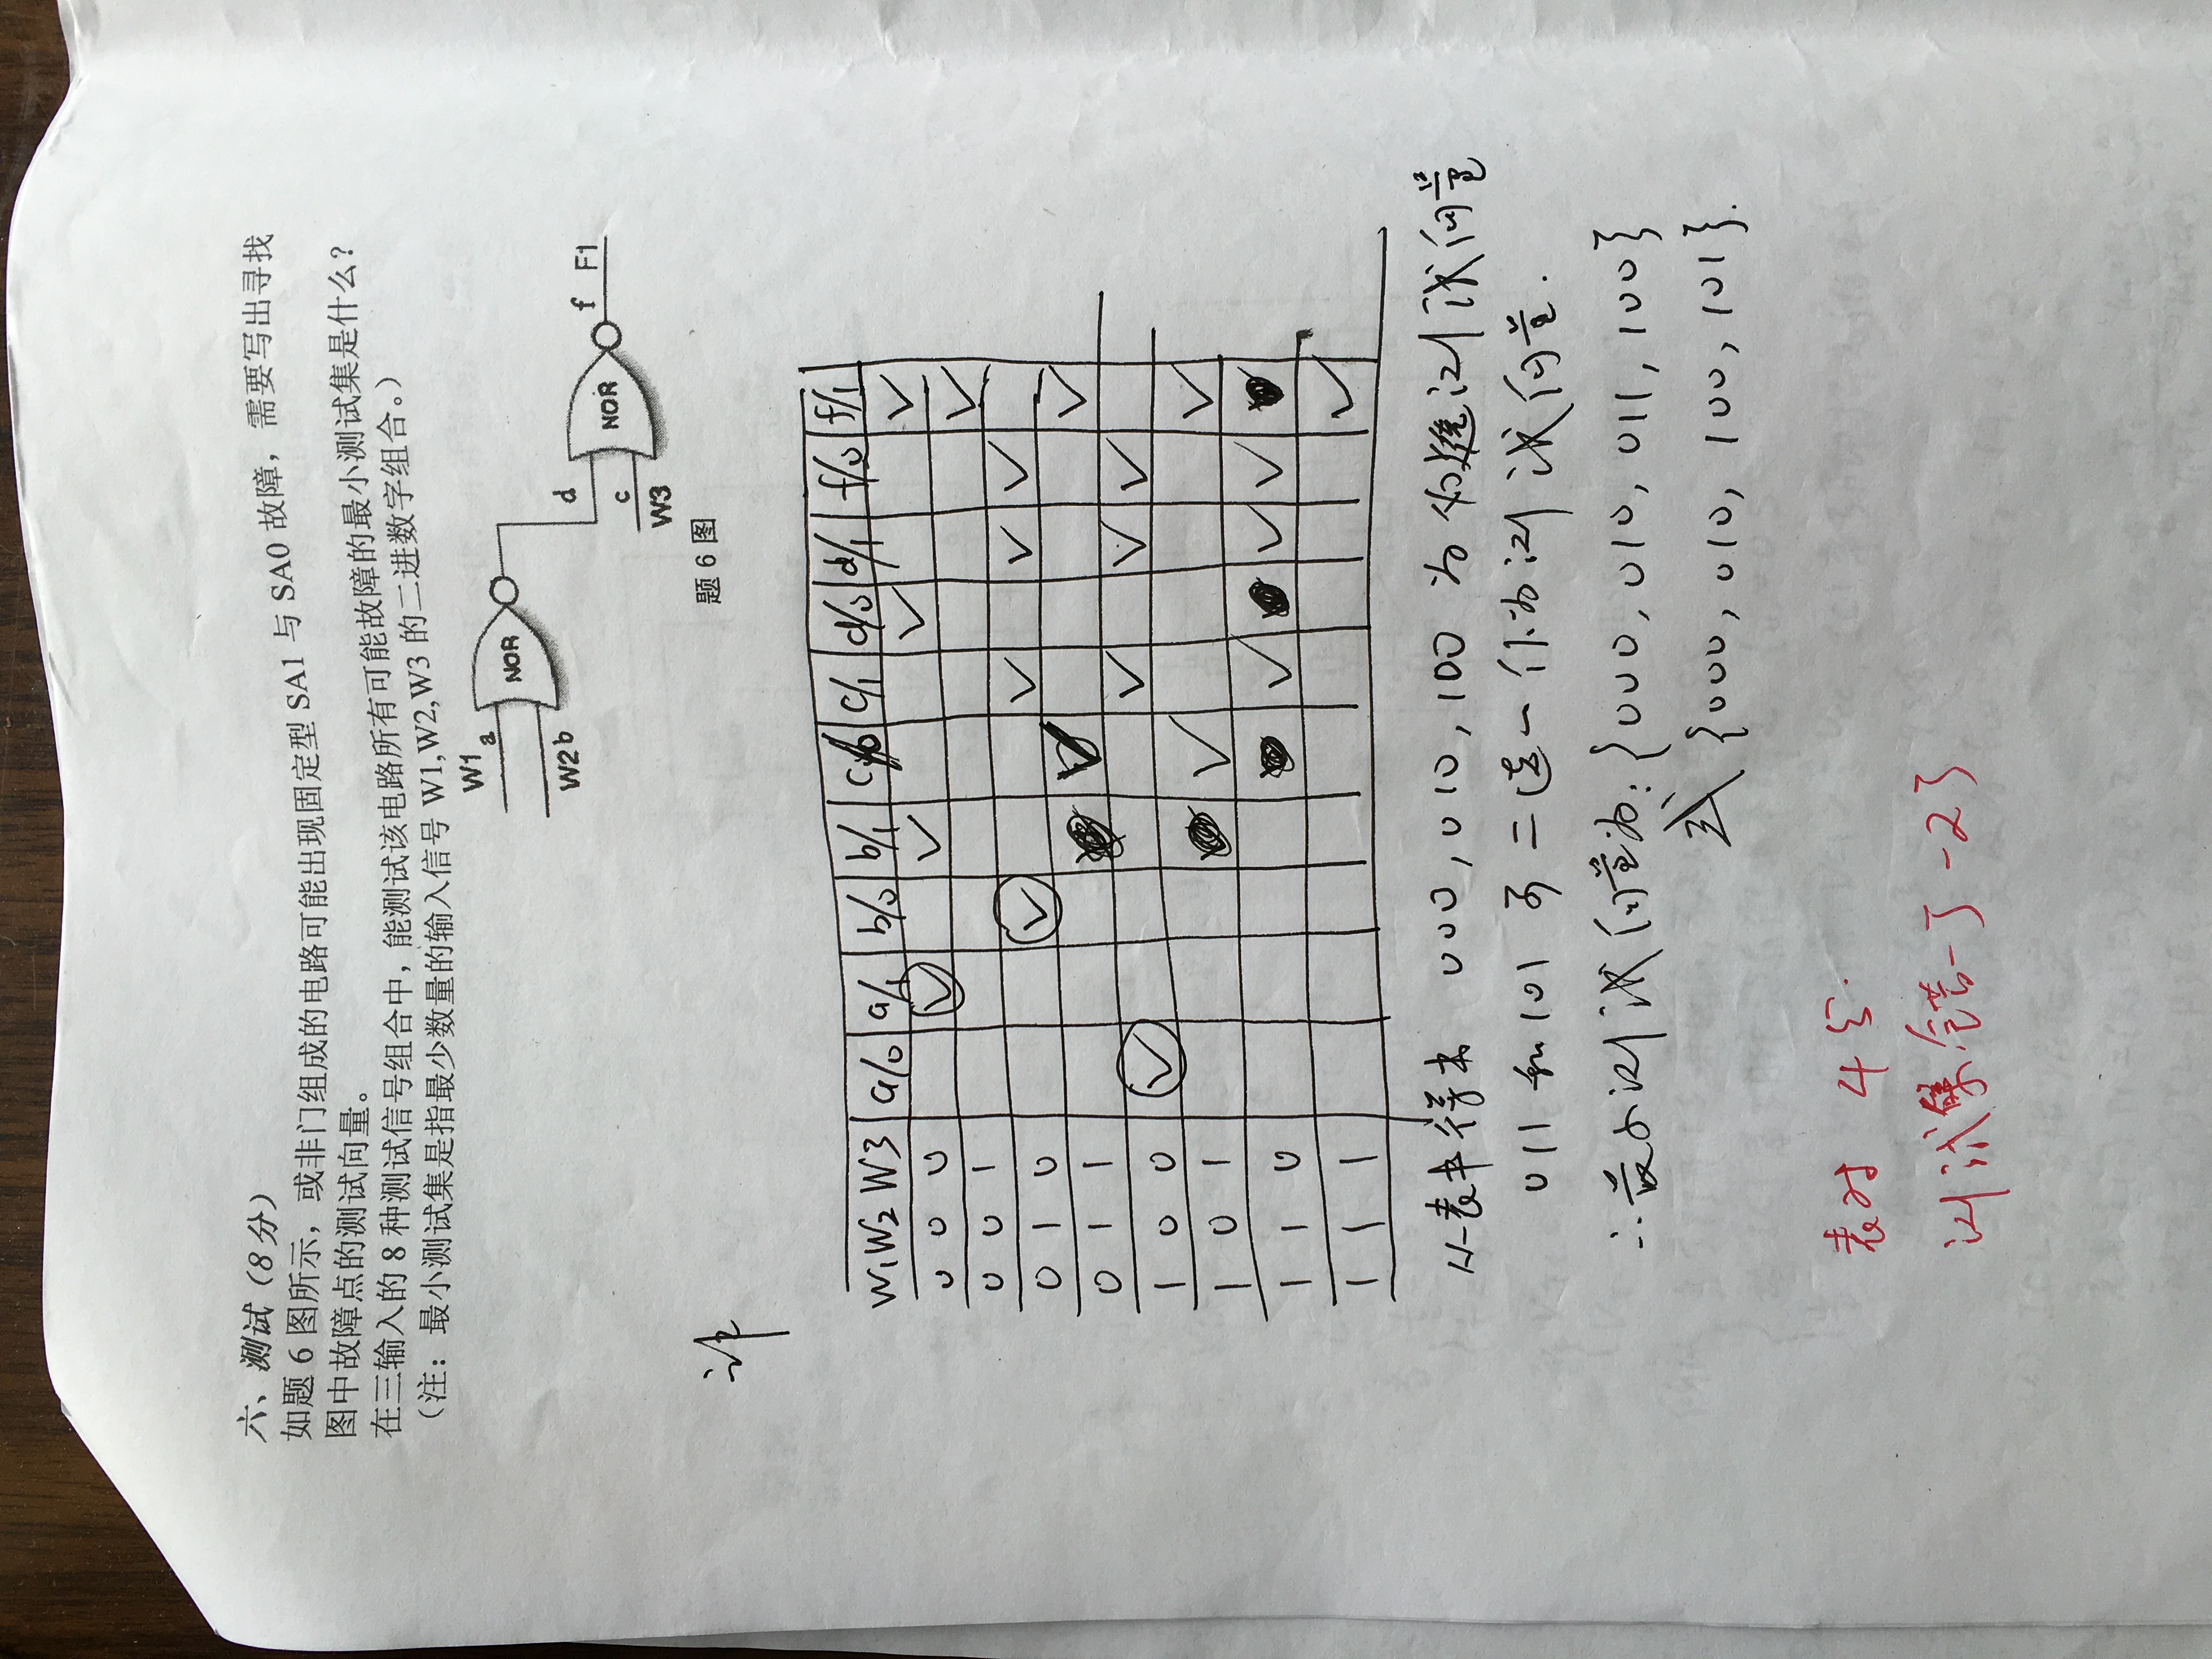 六、测试（8分）
如题6图所示，或非门组成的电路可能出现固定型SA1与SA0故障，需要写出寻找
图中故障点的测试向量。
在三输入的8种测试信号组合中，能测试该电路所有可能故障的最小测试集是什么？
（注：最小测试集是指最少数量的输入信号W1,W2,W3的二进制数字组合。）
W1 a
NOR
W2 b
d
f F1
NOR
c
W3
题6图
W1 W2 W3 a/0 a/1 b/0 b/1 c/0 c/1 d/0 d/1 f/0 f/1
0 0 0 ✓ ✓ ✓ ✓
0 0 1 ✓
0 1 0 ✓ ✓ ✓ ✓
0 1 1 ✓ ✓
1 0 0 ✓ ✓ ✓ ✓
1 0 1 ✓ ✓
1 1 0 ✓ ✓ ✓
1 1 1 ✓
从表中得出 000, 010, 100 为必选测试向量
011 和 101 可二选一作为测试向量.
∴最小测试向量为: {000, 010, 011, 100}
或 {000, 010, 100, 101}.
表对 4分.
测试集合错一个-2分